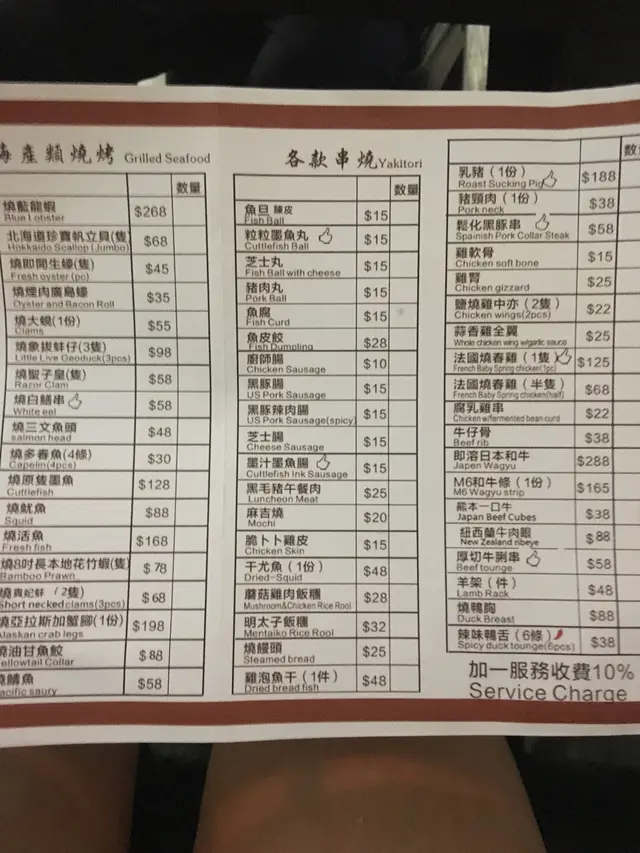 海產類燒烤 Grilled Seafood
數量
燒藍龍蝦 $268
Blue Lobster
北海道珍寶帆立貝(隻) $68
Hokkaido Scallop (Jumbo)
燒即開生蠔(隻) $45
Fresh oyster (pc)
燒煙肉廣島蠔 $35
Oyster and Bacon Roll
燒大蜆(1份) $55
Clams
燒象拔蚌仔(3隻) $98
Little Live Geoduck(3pcs)
燒聖子皇(隻) $58
Razor Clam
燒白鱔串 $58
White eel
燒三文魚頭 $48
salmon head
燒多春魚(4條) $30
Capelm(4pcs)
燒原隻墨魚 $128
Cuttlefish
燒魷魚 $88
Squid
燒活魚 $168
Fresh fish
燒8吋長本地花竹蝦(隻) $78
Bamboo Prawn
燒貴妃蚌(2隻) $68
Short necked clams(3pcs)
燒亞拉斯加蟹腳(1份) $198
Alaskan crab legs
燒油甘魚鮫 $88
ellowtail Collar
燒鯖魚 $58
acific saury
各款串燒 Yakitori
數量
魚旦 陳皮 $15
Fish Ball
粒粒墨魚丸 $15
Cuttlefish Ball
芝士丸 $15
Fish Ball with cheese
豬肉丸 $15
Pork Ball
魚腐 $15
Fish Curd
魚皮餃 $28
Fish Dumpling
廚師腸 $10
Chicken Sausage
黑豚腸 $15
US Pork Sausage
黑豚辣肉腸 $15
US Pork Sausage(spicy)
芝士腸 $15
Cheese Sausage
墨汁墨魚腸 $15
Cuttlefish Ink Sausage
黑毛豬午餐肉 $25
Luncheon Meat
麻吉燒 $20
Mochi
脆卜卜雞皮 $15
Chicken Skin
干尤魚（1份） $48
Dried-Squid
蘑菇雞肉飯糰 $28
Mushroom&Chicken Rice Rool
明太子飯糰 $32
Mentaiko Rice Rool
燒饅頭 $25
Steamed bread
雞泡魚干（1件） $48
Dried bread fish
數
乳豬（1份） $188
Roast Sucking Pig
豬頸肉（1份） $38
Pork neck
鬆化黑豚串 $58
Spainish Pork Collar Steak
雞軟骨 $15
Chicken soft bone
雞腎 $25
Chicken gizzard
鹽燒雞中亦（2隻） $22
Chicken wings(2pcs)
蒜香雞全翼 $25
Whole chicken wing w/garlic sauce
法國燒春雞（1隻） $125
French Baby Spring chicken(1pc)
法國燒春雞（半隻） $68
French Baby Spring chicken(half)
腐乳雞串 $22
Chicken w/fermented bean curd
牛仔骨 $38
Beef rib
即溶日本和牛 $288
Japen Wagyu
M6和牛條（1份） $165
M6 Wagyu strip
熊本一口牛 $38
Japan Beef Cubes
紐西蘭牛肉眼 $88
New Zealand ribeye
厚切牛脷串 $58
Beef tounge
羊架（件） $48
Lamb Rack
燒鴨胸 $88
Duck Breast
辣味鴨舌（6條） $38
Spicy duck tounge(6pcs)
加一服務收費10%
Service Charge